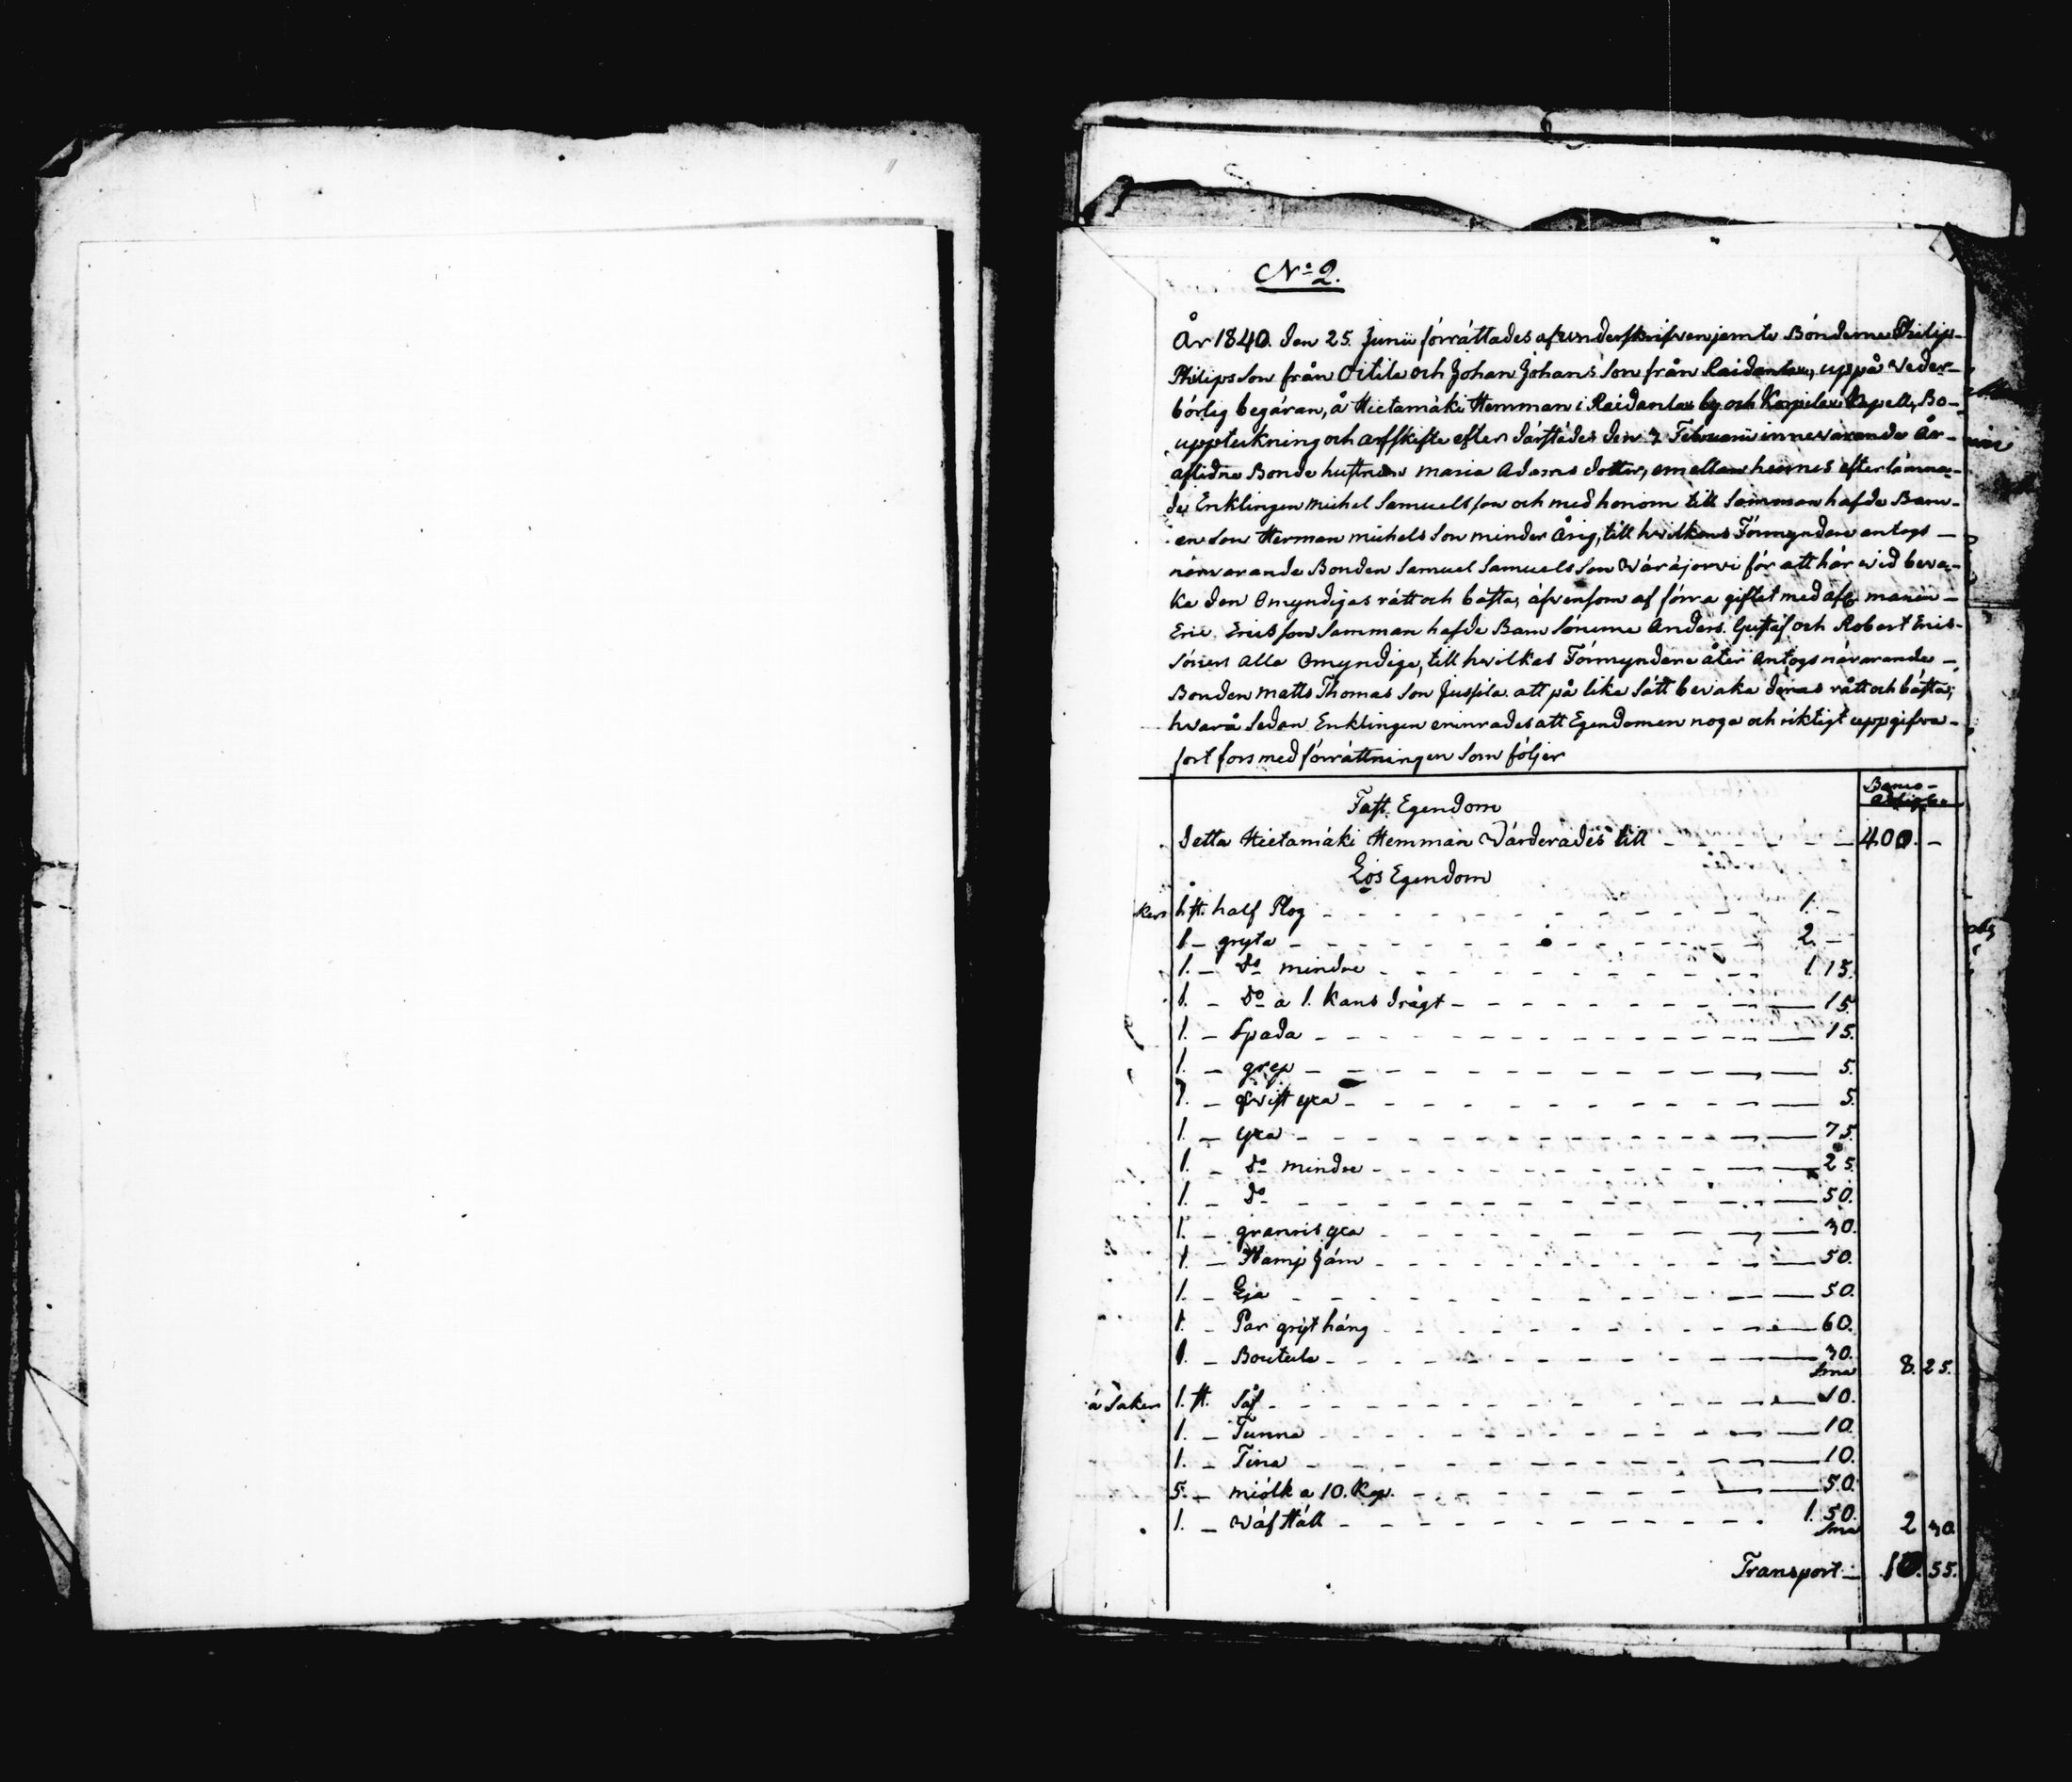 No 2.
År 1840. den 25. Junii förrättades af underskrifven jemte Bönderne Philip
Philipsson från Oitila och Johan Johansson från Raidanlax, uppå veder-
börlig begäran, å Hietamäki Hemman i Raidanlax by och Karpilax Capell, Bo-
uppteckning och arfskifte efter därstädes den 7 Februarii innevarande År
aflidne Bonde hustrun Maria Adamsdotter, emellan hennes efterlämna-
de Enklingen Michel Samuelsson och med honom till samman hafde Barn
en Son Herman Michelsson minder Årig, till hvilkens Förmyndare antogs
närvarande Bonden Samuel Samuelsson Wäräjervi för att här wid beva-
ka den Omyndigas rätt och bästa, äfvensom af förra giftet med afl.
Eric Ericsson samman hafde Barn Sönerne Anders. Gustaf och Robert Erics-
Söner Alla Omyndige, till hvilkas Förmyndare åter Antogs närvarande
Bonden Matts Thomas Son Jussila att på lika sätt bevaka deras rätt och bästa;
hvarå sedan Enklingen erinrades att Egendomen noga och riktigt uppgifva
fort fors med förrättningen som följer
Banco-
Fast. Egendom
detta Hietamäki Hemman Värderades till 400. -
Lös Egendom
ker 1. st. half Plog 1. -
1 - gryta 2. -
1. - do mindre 1. 15.
1. - do a 1. kans drägt 15.
1. - Spada 15.
1. - grep 5.
1. - qvist yxa 5.
1. - yxa 75.
1. - do mindre 25.
1. - do 50.
1. - granris yxa 30.
1. - Stamp Järn 50.
1. - Lja 50.
1. - Par gryt häng 60.
1. - Boutula 30.
Sma 8. 25.
ä Saker 1. st. Såf 10.
1. - Tunna 10.
1. - Tina 10.
5. - miölk a 10. Kop. 50.
1. - Wäf Ställ 1. 50.
Sma 2 30.
Transport 10. 55.